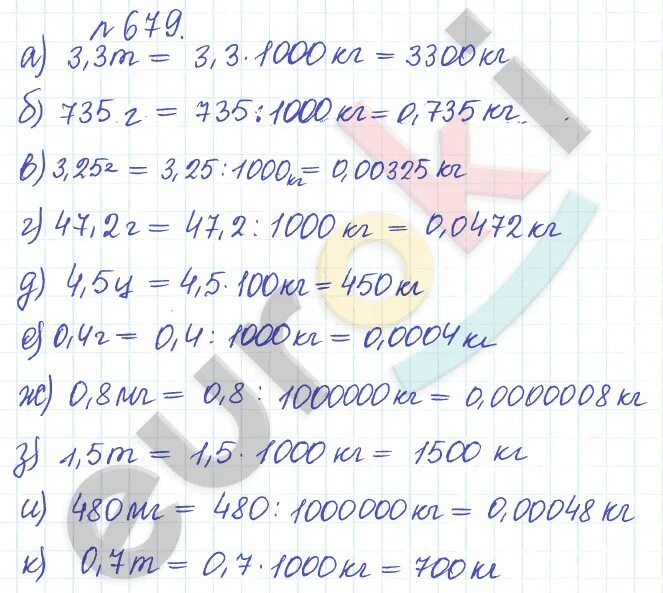 №679.
а) 3,3т = 3,3·1000 кг = 3300 кг
б) 735 г = 735:1000 кг = 0,735 кг.
в) 3,25г = 3,25:1000кг = 0,00325 кг
г) 47,2 г = 47,2:1000 кг = 0,0472 кг
д) 4,5ц = 4,5·100кг = 450 кг
е) 0,4г = 0,4:1000кг = 0,0004 кг
ж) 0,8мг = 0,8:1000000 кг = 0,0000008 кг
з) 1,5т = 1,5·1000 кг = 1500 кг
и) 480мг = 480:1000000 кг = 0,00048 кг
к) 0,7т = 0,7·1000кг = 700кг
euroki